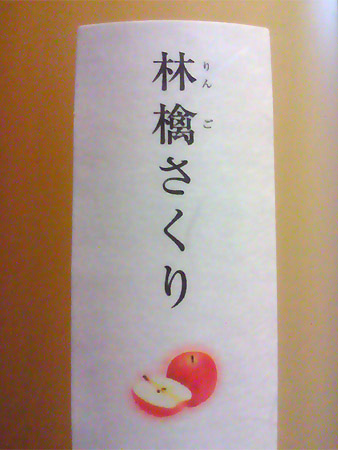 林檎さくり
りんご